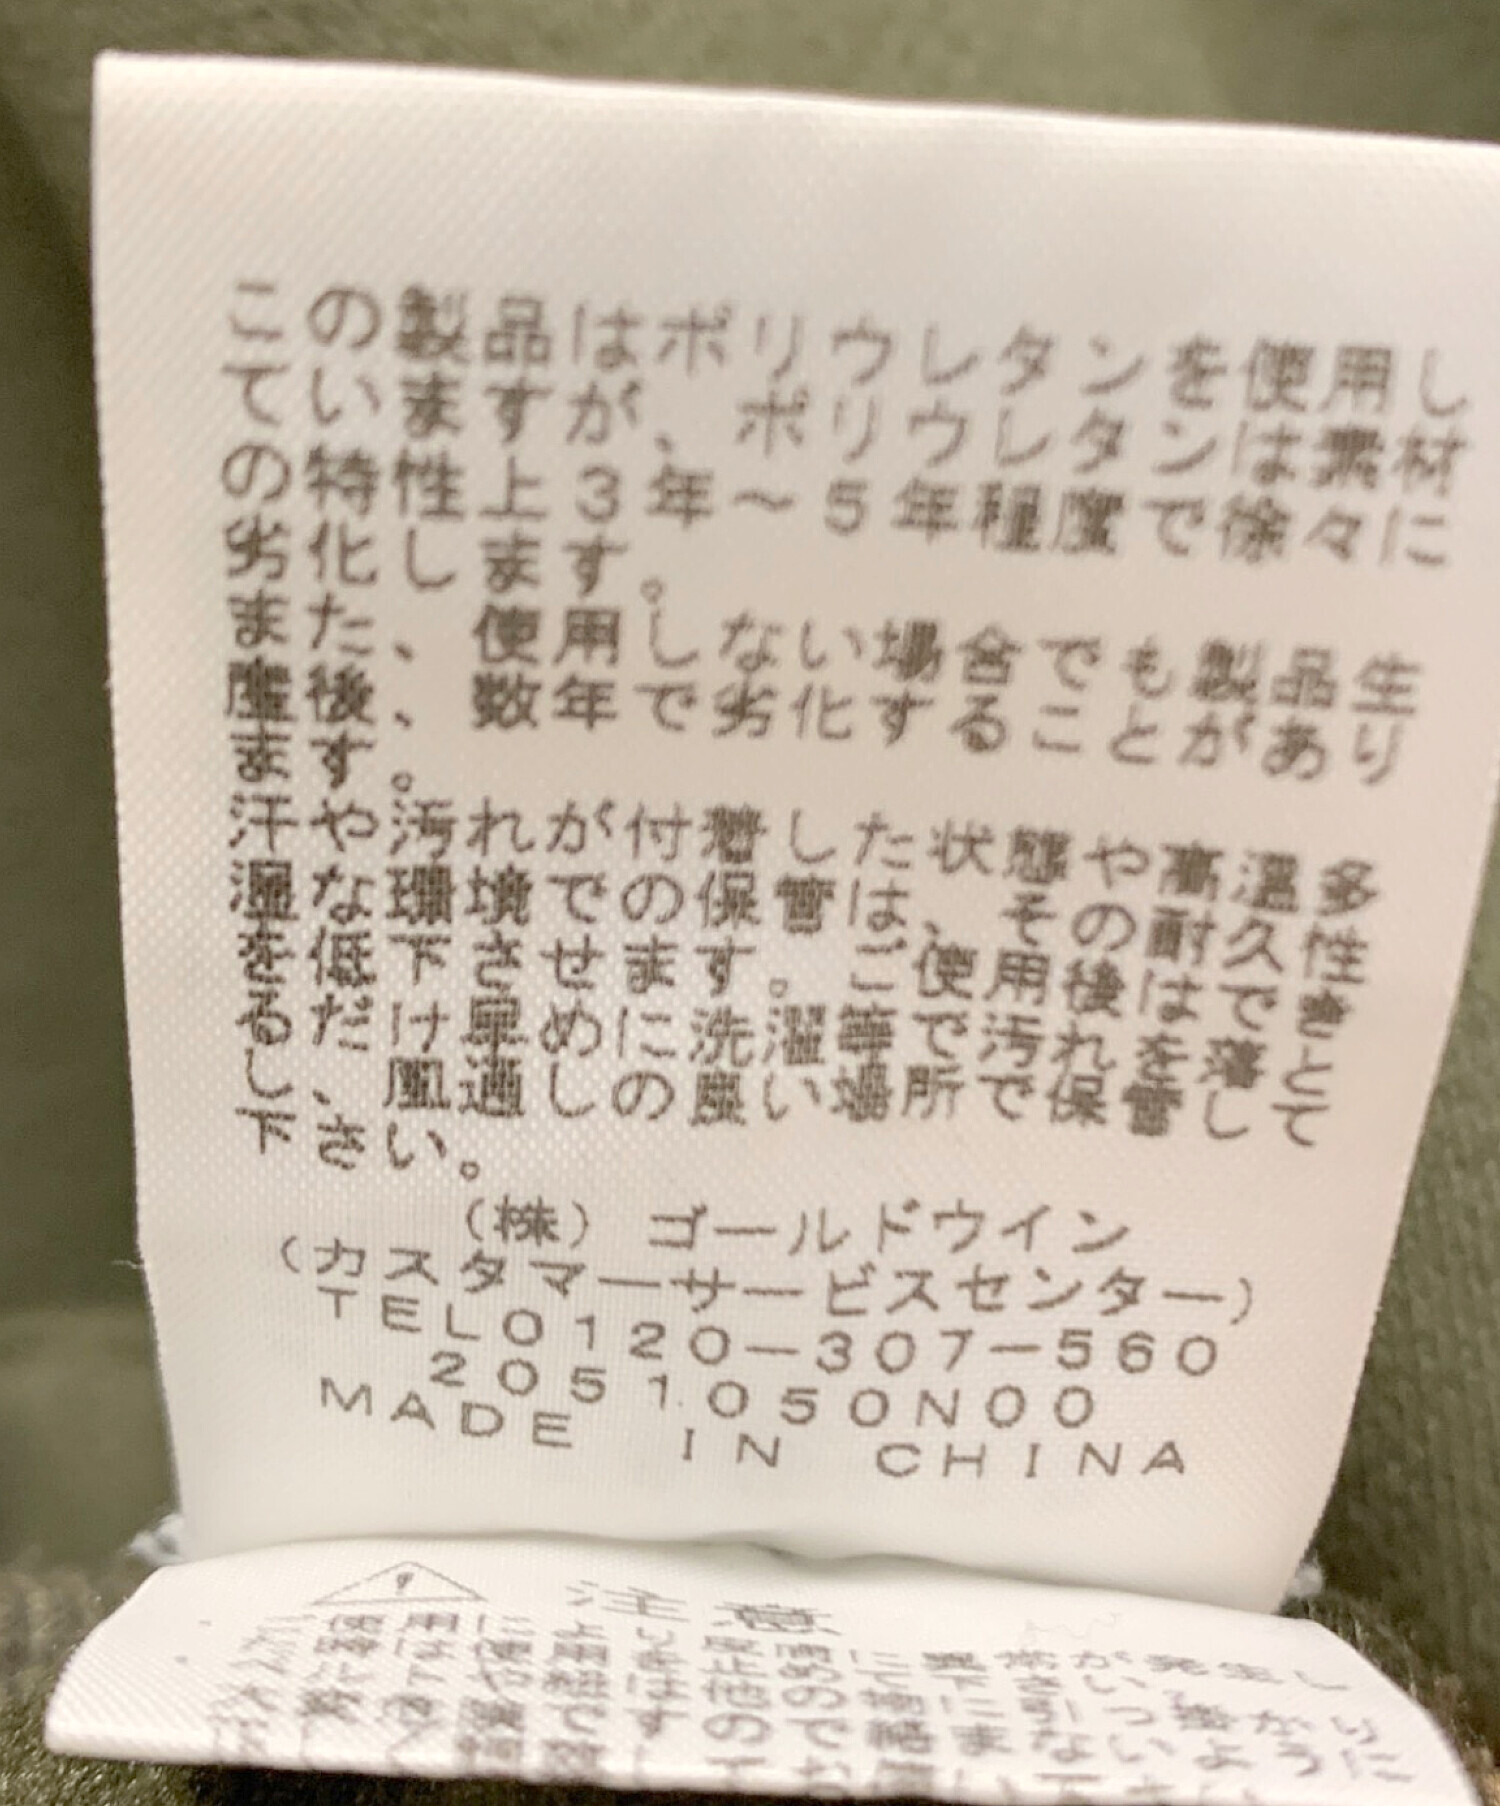 この製品はポリウレタンを使用し
ていますが、ポリウレタンは素材
の特性上3年～5年程度で徐々に
劣化します。
また、使用しない場合でも製品生
産後、数年で劣化することがあり
ます。
汗や汚れが付着した状態や高温多
湿な環境での保管は、その耐久性
を低下させます。ご使用後はでき
るだけ早めに洗濯等で汚れを落と
し、風通しの良い場所で保管して
下さい。
(株)ゴールドウイン
(カスタマーサービスセンター)
TEL0120-307-560
2051050N00
MADE IN CHINA
注意